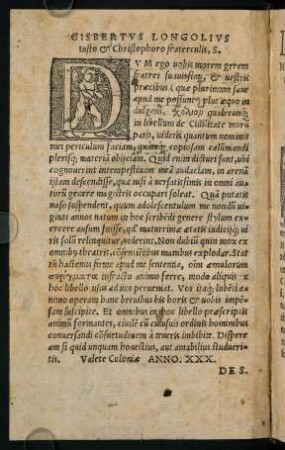 GISBERTVS LONGOLIVS
Iusto & Christophoro fraterculis, S.
DVM ego uobis morem gerem
fratres suauissimi, & uestris
præcibus (quæ plurimum sane
apud me possunt) plus æquo in
dulgens, σχόλιον qualecunq;
in libellum de Ciuilitate morū
paro, uideris quantum nominis
mei periculum faciam, quamq; copiosam calumnandi
plerisq; materiā obijciam. Quid enim dicturi sunt, ubi
cognouerint intempestiuam meā audaciam, in arenā
istam descendisse, quā nisi à uersatissimis in omni au
torū genere magistris occupari soleat. Quā putatis
naso suspendent, quum adolescentulum me nondū ui-
ginti annos natum in hoc scribēdi genere stylum ex-
ercere ausum fuisse, qd' maturrimæ ætatis iudicijq; ui
ris solis relinquitur, uiderint. Non dubiū quin mox ex
omnibq theatris, cōsentiētibus manibus explodar. Stat
tn̄ hactenus firme apud me sententia, oīm amulorum
infracto animo ferre, modo aliquis ex
hoc libello usus ad uos perueniat. Vos itaq; lubēti a-
nimo operam hanc breuibus his horis & uobis impē-
sam suscipite. Et omnibus in hoc libello præscriptis
animū formantes, ciuile cū cuiusuis ordinis hominibus
conuersandi cōsuetudinem à teneris imbibite. Disperea
am si quid unquam honestius, aut amabilius studueri-
tis. Valete Coloniæ ANNO. XXX.
DE S.